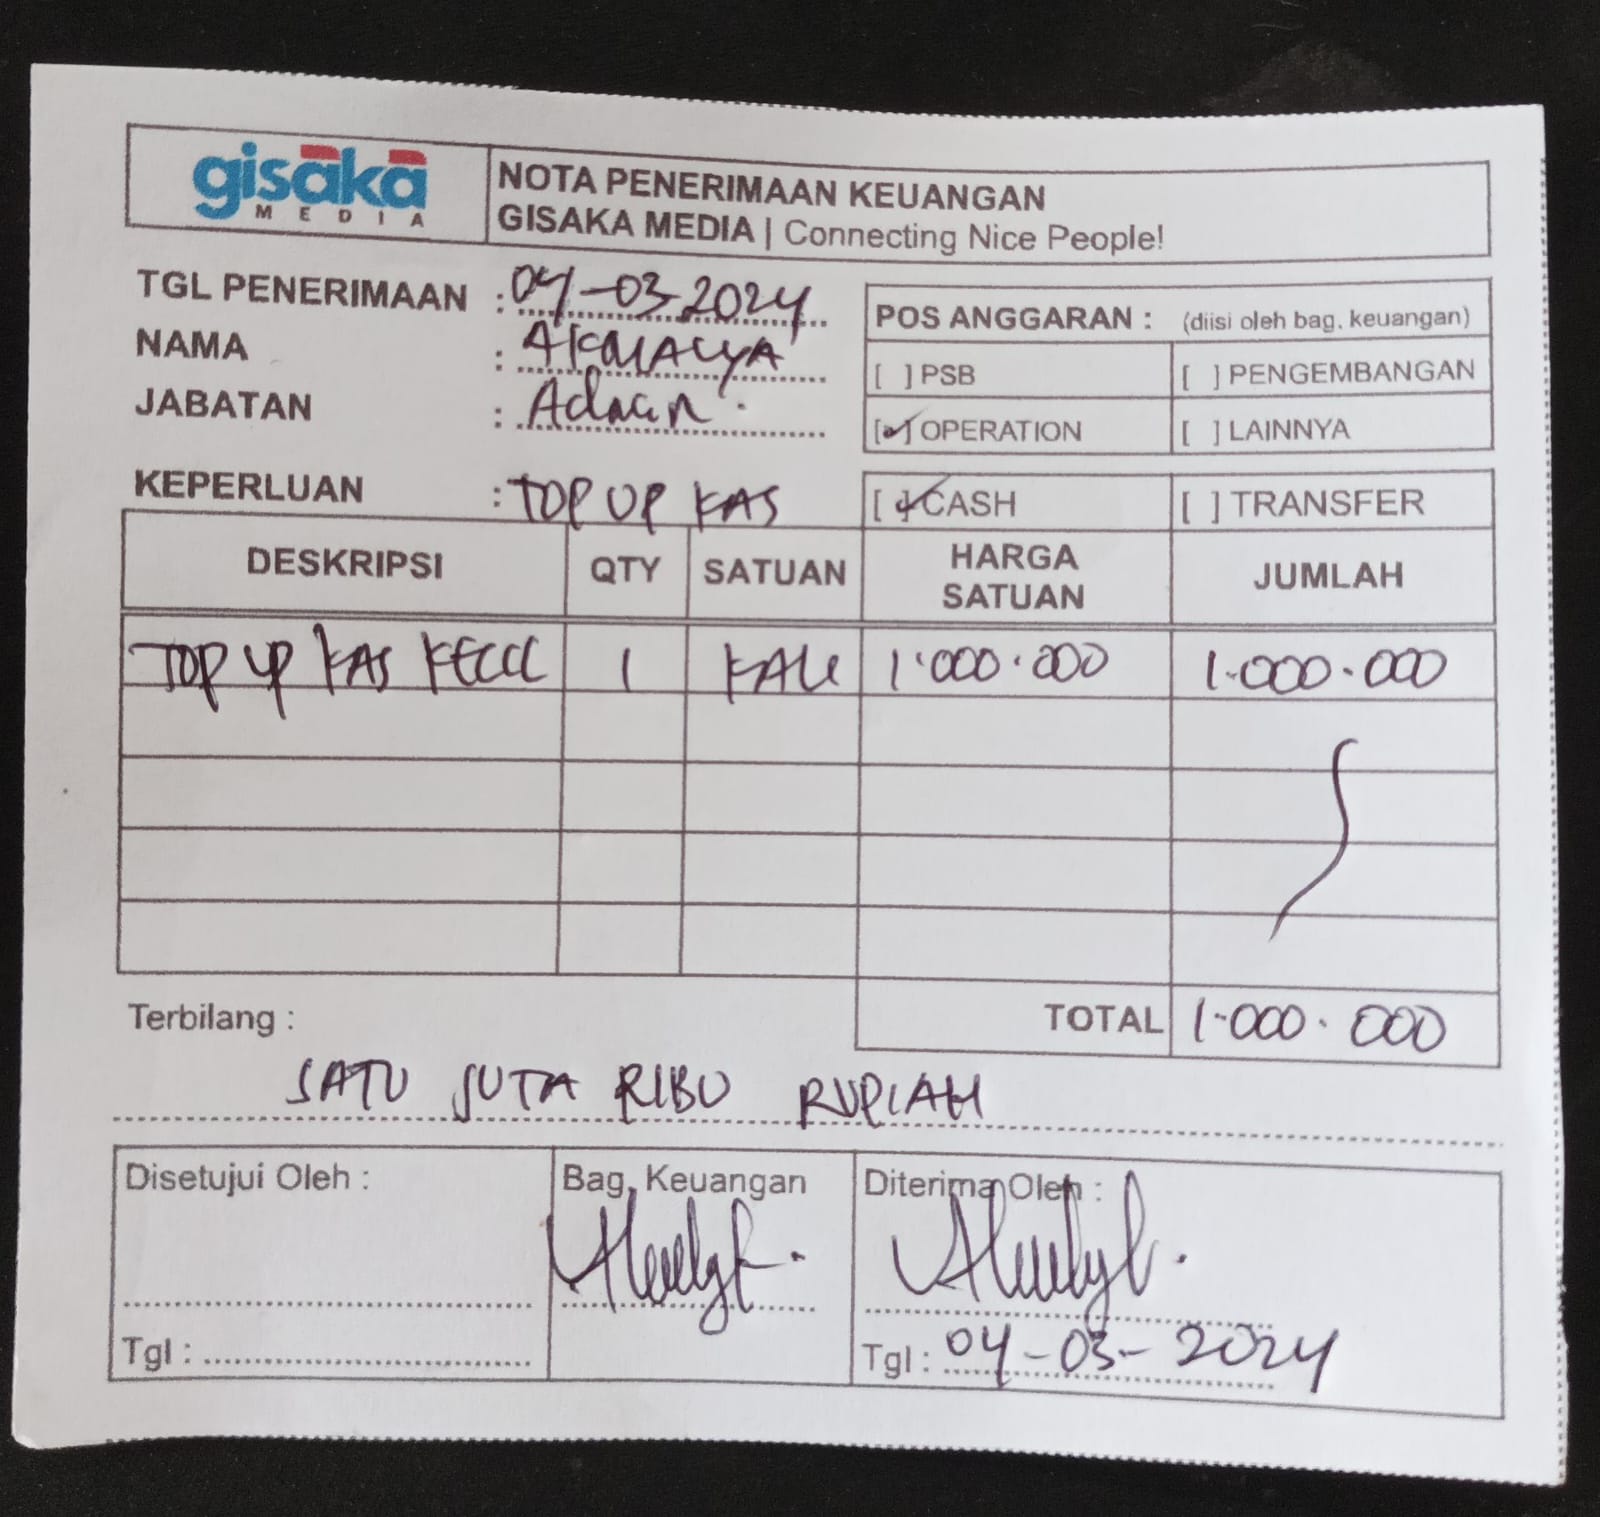 gisaka
MEDIA
NOTA PENERIMAAN KEUANGAN
GISAKA MEDIA | Connecting Nice People!
TGL PENERIMAAN : 04-03-2024
NAMA : AKMALIYA
JABATAN : Admin
POS ANGGARAN : (diisi oleh bag. keuangan)
[ ] PSB [ ] PENGEMBANGAN
[✓] OPERATION [ ] LAINNYA
KEPERLUAN : TOP UP KAS
[✓] CASH [ ] TRANSFER
DESKRIPSI QTY SATUAN HARGA SATUAN JUMLAH
TOP UP KAS KECIL 1 KALI 1.000.000 1.000.000
TOTAL 1.000.000
Terbilang :
SATU JUTA RIBU RUPIAH
Disetujui Oleh : Bag. Keuangan Diterima Oleh :
Tgl : Tgl : 04-03-2024